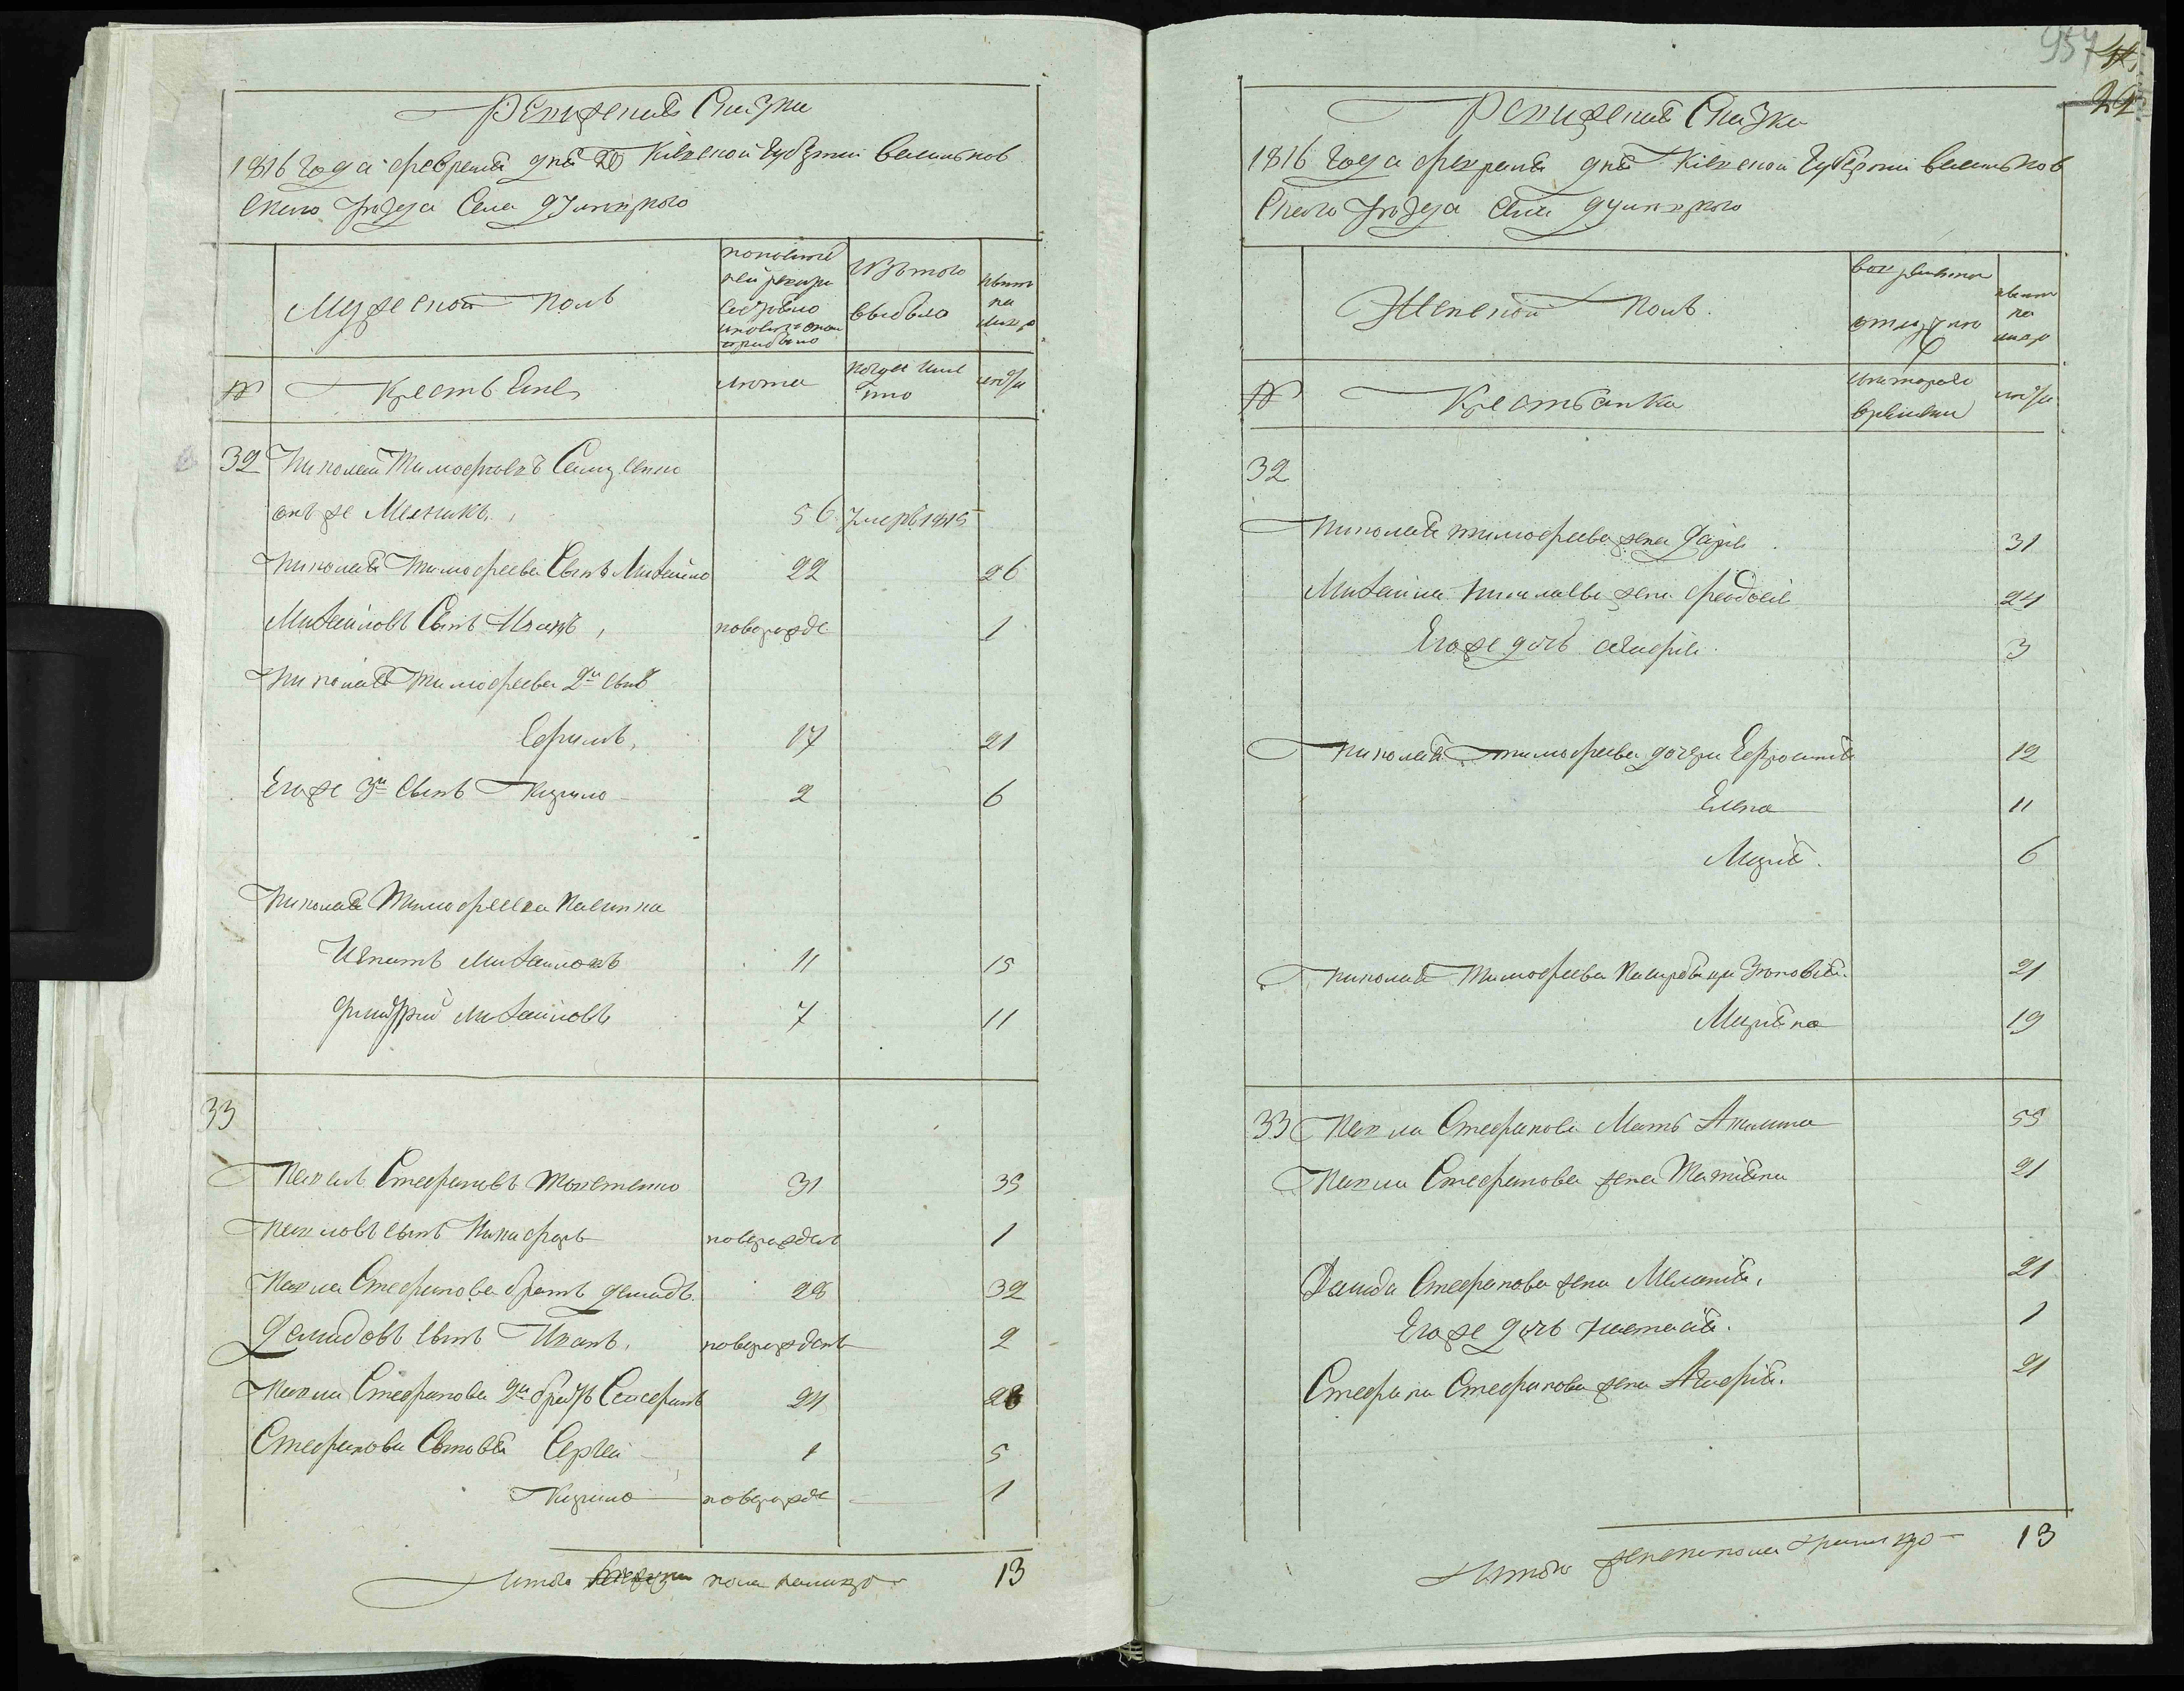 Ревизская Сказка
1816 года февраля дня 20 Кіевской Губерніи васильков
скаго уезда Села
Мужеской полъ
по последней ревизіи состояло и после оной прибыло
Изъ того выбыло
ныне на лицо
№
Крестьяне
лета
когда именно
лета
32
Николай Тимофеевъ
онъ же Мельникъ
56
умеръ 1815
Николая Тимофеева Сынъ Михайло
22
26
Михайловъ Сынъ Иванъ
новорожде
1
Николая Тимофеева 2й сынъ
Ефимъ
17
21
Его же 3й Сынъ Кирило
2
6
Николая Тимофеева
Игнатъ Михайловъ
11
15
Дмитрий Михайловъ
7
11
33
Павелъ Стефановъ
31
35
Павловъ сынъ Никифоръ
новорожден
1
Павла Стефанова братъ Демидъ
28
32
Демидовъ сынъ Иванъ
новорожденъ
2
Павла Стефанова 2й братъ Стефанъ
24
28
Стефанова Сыновья Сергей
1
5
Кирило
новорожде
1
Итого пола налицо
13
957
22
Ревизская Сказка
1816 года февраля дня Кіевской Губерніи васильков
скаго уезда Села
Женской полъ
во временной отлучке
ныне на лицо
№
Крестьянки
лета
32
Николая тимофеева жена Дарія
31
Михайла Николаева жена феодосія
24
Его же дочь агафія
3
Николая тимофеева дочери Ефросинія
12
Елена
11
Марія
6
Николая Тимофеева Зиновія
21
Маріяна
19
33
Павла Стефанова Мать Акилина
55
Павла Стефанова жена Татіяна
21
Демида Стефанова жена Меланія
21
Его же дочь Настасія
1
Стефана Стефанова жена Агафія
21
Итого женска пола налицо
13